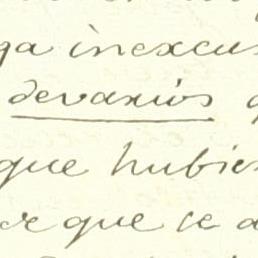 ga inexcus
devarios q
que hubies
or que se a